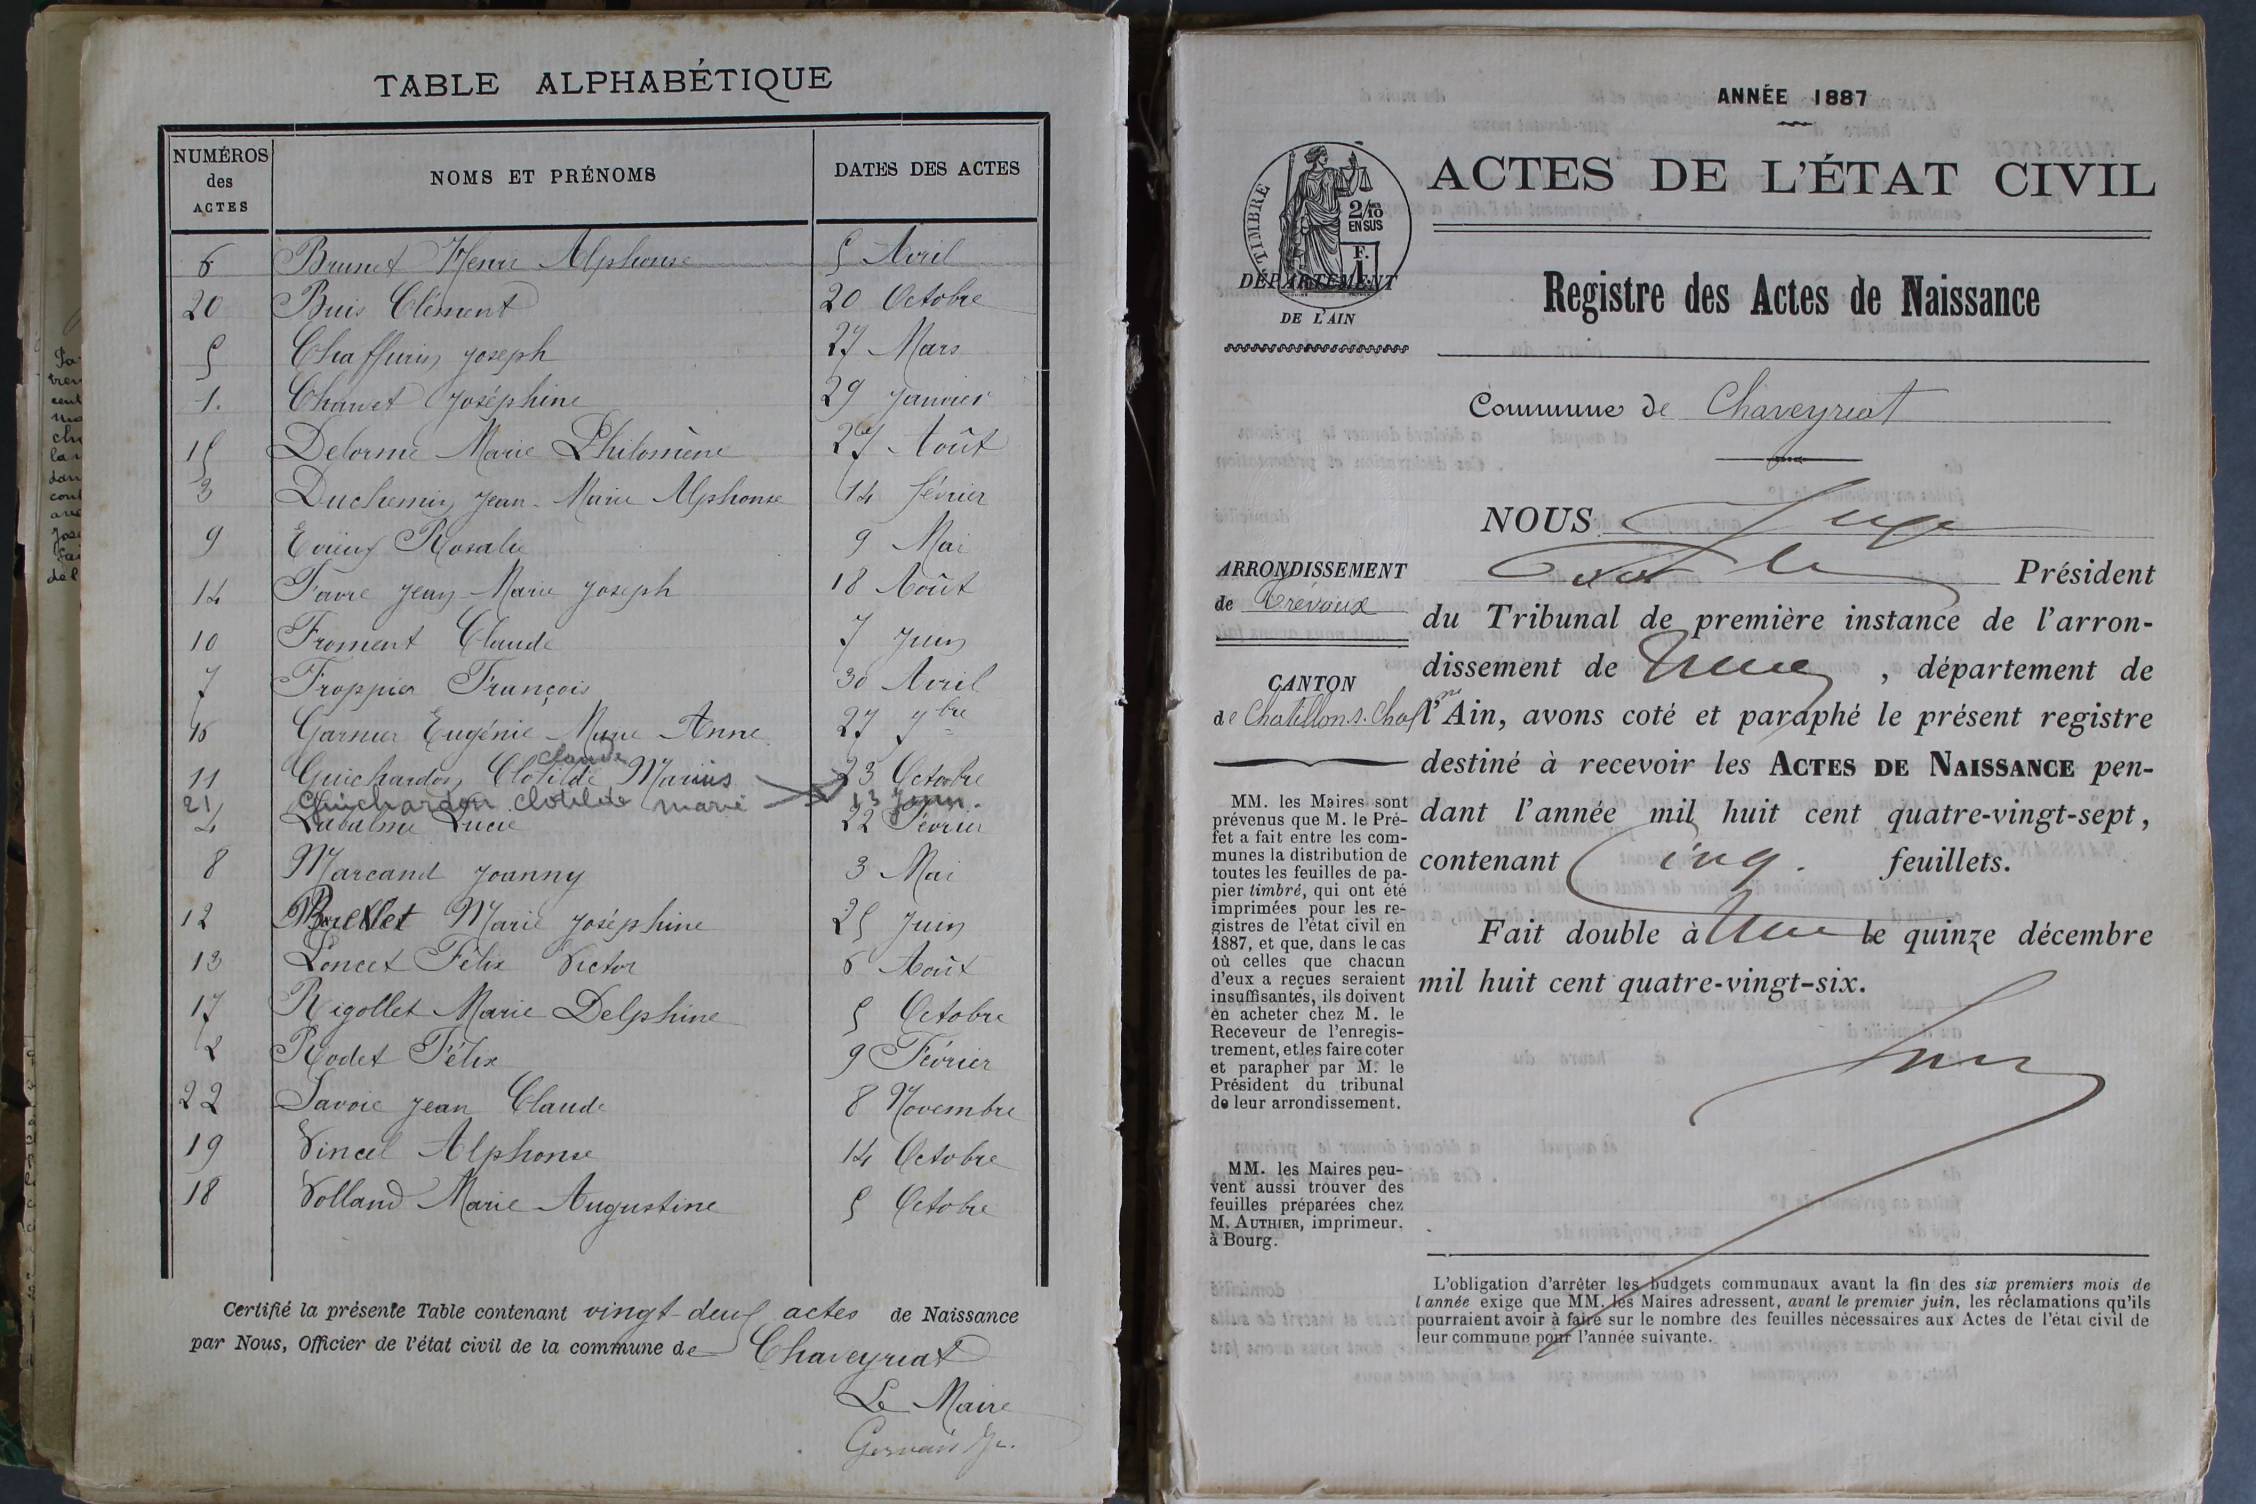 TABLE ALPHABÉTIQUE
NUMÉROS des ACTES NOMS ET PRÉNOMS DATES DES ACTES
6 Brunet Henri Alphonse 5 Avril
20 Buis Clément 20 Octobre
5 Chaffurin Joseph 27 Mars
1. Chanet Joséphine 29 Janvier
15 Delorme Marie Philomène 27 Août
3 Duchemin Jean-Marie Alphonse 14 février
9 Rosalie 9 Mai
14 Favre Jean Marie Joseph 18 Août
10 Froment Claude 7 Juin
7 Froppier François 30 Avril
16 Garnier Eugénie Marie Anne 27 7bre
Claude
11 Guichardon Clotilde Marius 23 Octobre
21 Guichardon Clotilde Marie 13 Juin.
4 Labalme Lucie 22 Février
8 Marcand Joanny 3 Mai
12 Marie Joséphine 25 Juin
13 Poncet Félix Victor 6 Août
17 Rigollet Marie Delphine 5 Octobre
2 Rodet Félix 9 Février
22 Savoie Jean Claude 8 Novembre
19 Vincel Alphonse 14 Octobre
18 Volland Marie Augustine 5 Octobre
Certifié la présente Table contenant vingt-deux actes de Naissance
par Nous, Officier de l'état civil de la commune de Chaveyriat
Le Maire
Gervais
ANNÉE 1887
TIMBRE
2/10
EN SUS
F.
1
DÉPARTEMENT
DE L'AIN
ACTES DE L'ÉTAT CIVIL
Registre des Actes de Naissance
Commune de Chaveyriat
ARRONDISSEMENT
de Trévoux
CANTON
de Chatillon s. Chalne
MM. les Maires sont
prévenus que M. le Pré-
fet a fait entre les com-
munes la distribution de
toutes les feuilles de pa-
pier timbré, qui ont été
imprimées pour les re-
gistres de l'état civil en
1887, et que, dans le cas
où celles que chacun
d'eux a reçues seraient
insuffisantes, ils doivent
en acheter chez M. le
Receveur de l'enregis-
trement, et les faire coter
et parapher par M. le
Président du tribunal
de leur arrondissement.
MM. les Maires peu-
vent aussi trouver des
feuilles préparées chez
M. AUTHIER, imprimeur,
à Bourg.
NOUS Juge
le Président
du Tribunal de première instance de l'arron-
dissement de , département de
l'Ain, avons coté et paraphé le présent registre
destiné à recevoir les ACTES DE NAISSANCE pen-
dant l'année mil huit cent quatre-vingt-sept,
contenant Cinq. feuillets.
Fait double à le quinze décembre
mil huit cent quatre-vingt-six.
L'obligation d'arrêter les budgets communaux avant la fin des six premiers mois de
l'année exige que MM. les Maires adressent, avant le premier juin, les réclamations qu'ils
pourraient avoir à faire sur le nombre des feuilles nécessaires aux Actes de l'état civil de
leur commune pour l'année suivante.